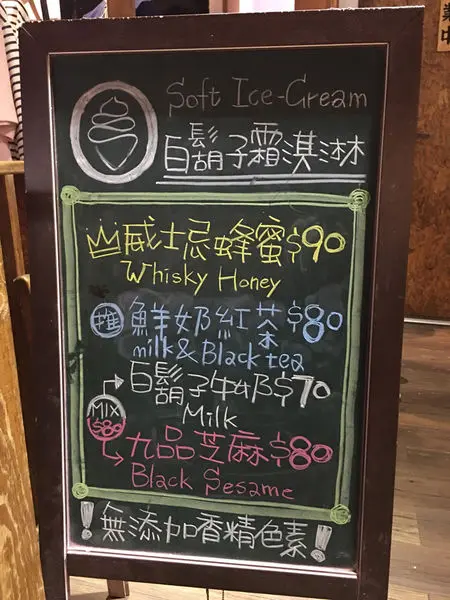 Soft Ice-Cream
白鬍子霜淇淋
威士忌蜂蜜$90
Whisky Honey
推 鮮奶紅茶$80
milk & Black tea
白鬍子牛奶$70
Milk
MIX
$80
九品芝麻$80
Black Sesame
!無添加香精色素!